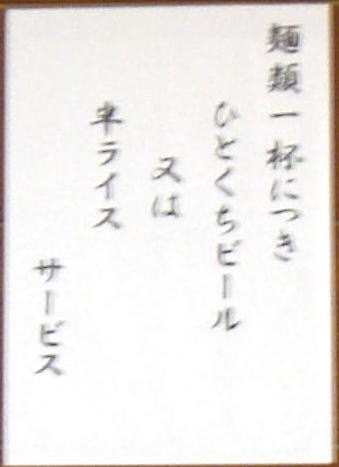 麺類一杯につき
ひとくちビール
又は
半ライス
サービス